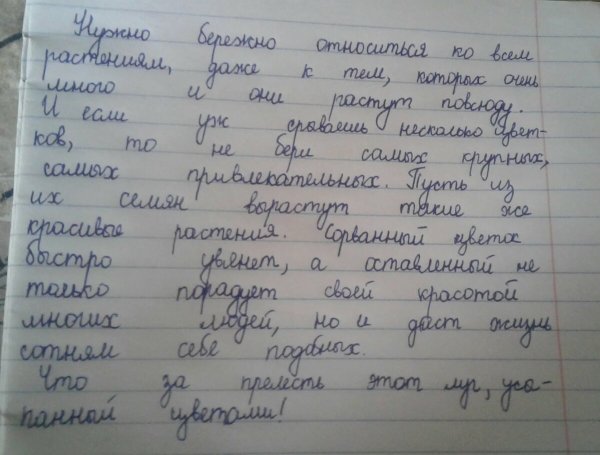 Нужно бережно относиться ко всем
растениям, даже к тем, которых очень
много и они растут повсюду.
И если уж срываешь несколько цвет-
ков, то не бери самых крупных,
самых привлекательных. Пусть из
их семян вырастут такие же
красивые растения. Сорванный цветок
быстро увянет, а оставленный не
только порадует своей красотой
многих людей, но и даст жизнь
сотням себе подобных.
Что за прелесть этот луг, усы-
панный цветами!